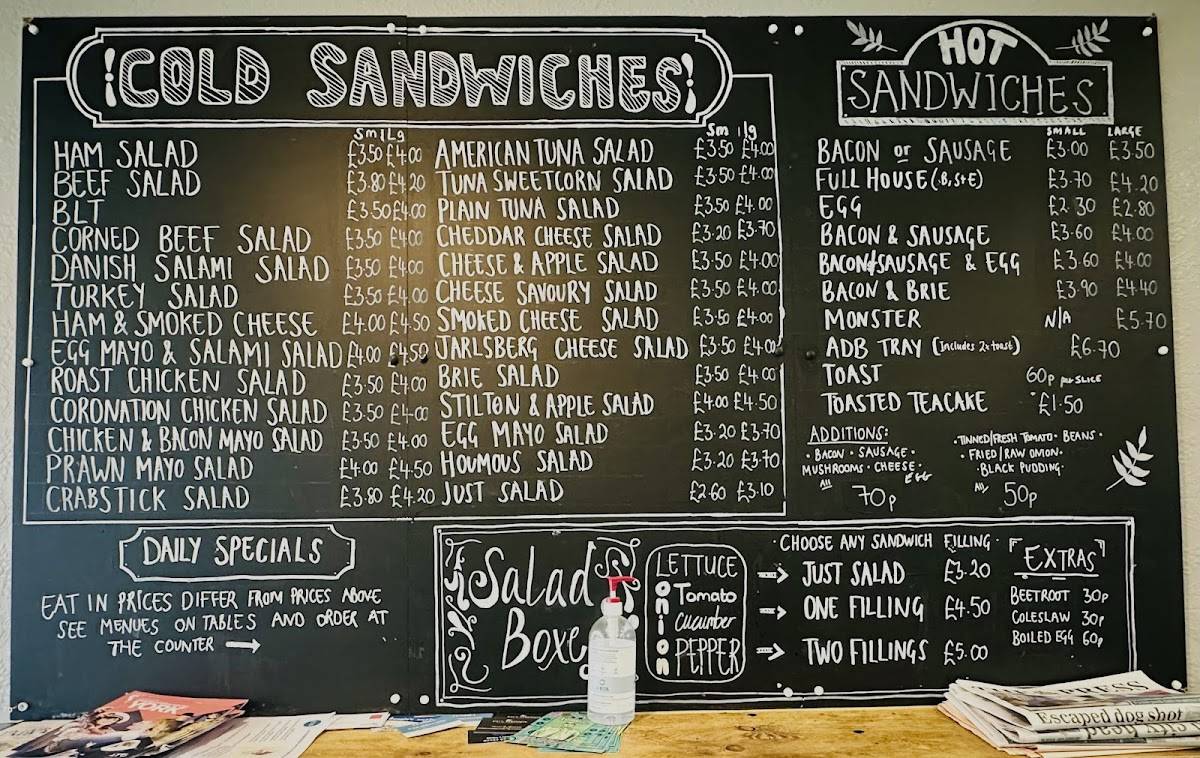 ¡COLD SANDWICHES!
Sm Lg
HAM SALAD £3.50 £4.00
BEEF SALAD £3.80 £4.20
BLT £3.50 £4.00
CORNED BEEF SALAD £3.50 £4.00
DANISH SALAMI SALAD £3.50 £4.00
TURKEY SALAD £3.50 £4.00
HAM & SMOKED CHEESE £4.00 £4.50
EGG MAYO & SALAMI SALAD £4.00 £4.50
ROAST CHICKEN SALAD £3.50 £4.00
CORONATION CHICKEN SALAD £3.50 £4.00
CHICKEN & BACON MAYO SALAD £3.50 £4.00
PRAWN MAYO SALAD £4.00 £4.50
CRABSTICK SALAD £3.80 £4.20
Sm lg
AMERICAN TUNA SALAD £3.50 £4.00
TUNA SWEETCORN SALAD £3.50 £4.00
PLAIN TUNA SALAD £3.50 £4.00
CHEDDAR CHEESE SALAD £3.20 £3.70
CHEESE & APPLE SALAD £3.50 £4.00
CHEESE SAVOURY SALAD £3.50 £4.00
SMOKED CHEESE SALAD £3.50 £4.00
JARLSBERG CHEESE SALAD £3.50 £4.00
BRIE SALAD £3.50 £4.00
STILTON & APPLE SALAD £4.00 £4.50
EGG MAYO SALAD £3.20 £3.70
HOUMOUS SALAD £3.20 £3.70
JUST SALAD £2.60 £3.10
HOT
SANDWICHES
SMALL LARGE
BACON or SAUSAGE £3.00 £3.50
FULL HOUSE (B,S+E) £3.70 £4.20
EGG £2.30 £2.80
BACON & SAUSAGE £3.60 £4.00
BACON/SAUSAGE & EGG £3.60 £4.00
BACON & BRIE £3.90 £4.40
MONSTER N/A £5.70
ADB TRAY (includes 2x toast) £6.70
TOAST 60p per SLICE
TOASTED TEACAKE £1.50
ADDITIONS:
· BACON · SAUSAGE ·
MUSHROOMS · CHEESE · EGG
All 70p
· TINNED/FRESH TOMATO · BEANS ·
· FRIED/RAW ONION ·
· BLACK PUDDING ·
All 50p
DAILY SPECIALS
EAT IN PRICES DIFFER FROM PRICES ABOVE
SEE MENUES ON TABLES AND ORDER AT
THE COUNTER →
Salad
Boxe
LETTUCE
Onion
Tomato
cucumber
PEPPER
· CHOOSE ANY SANDWICH FILLING ·
JUST SALAD £3.20
ONE FILLING £4.50
TWO FILLINGS £5.00
"EXTRAS"
BEETROOT 30p
COLESLAW 30p
BOILED EGG 60p
YORK
PRESS
Escaped dog shot